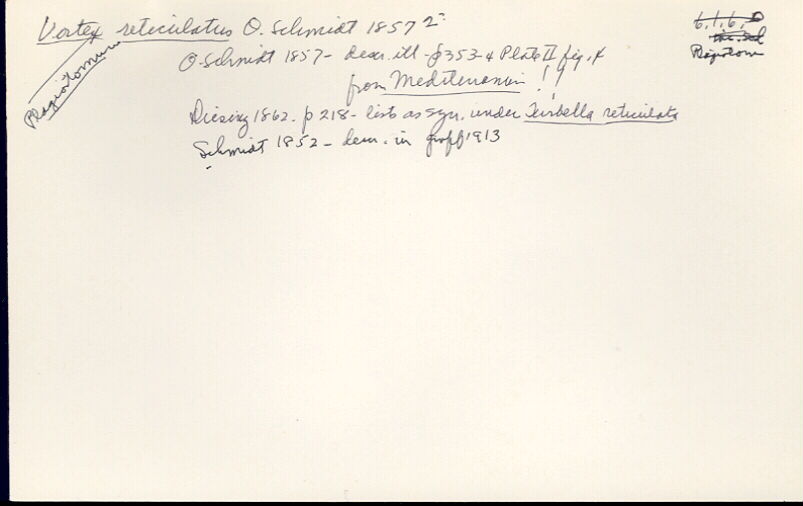 Vortex reticulatus O. Schmidt 1857 2:
6.1.6.
Plagiostomum
O. Schmidt 1857 - descr. ill - p 353 & Plate II fig. 4
from Mediterranean !!
Diesing 1862. p 218 - lists as syn. under Turbella reticulata
Schmidt 1852 - descr. in Graff 1913